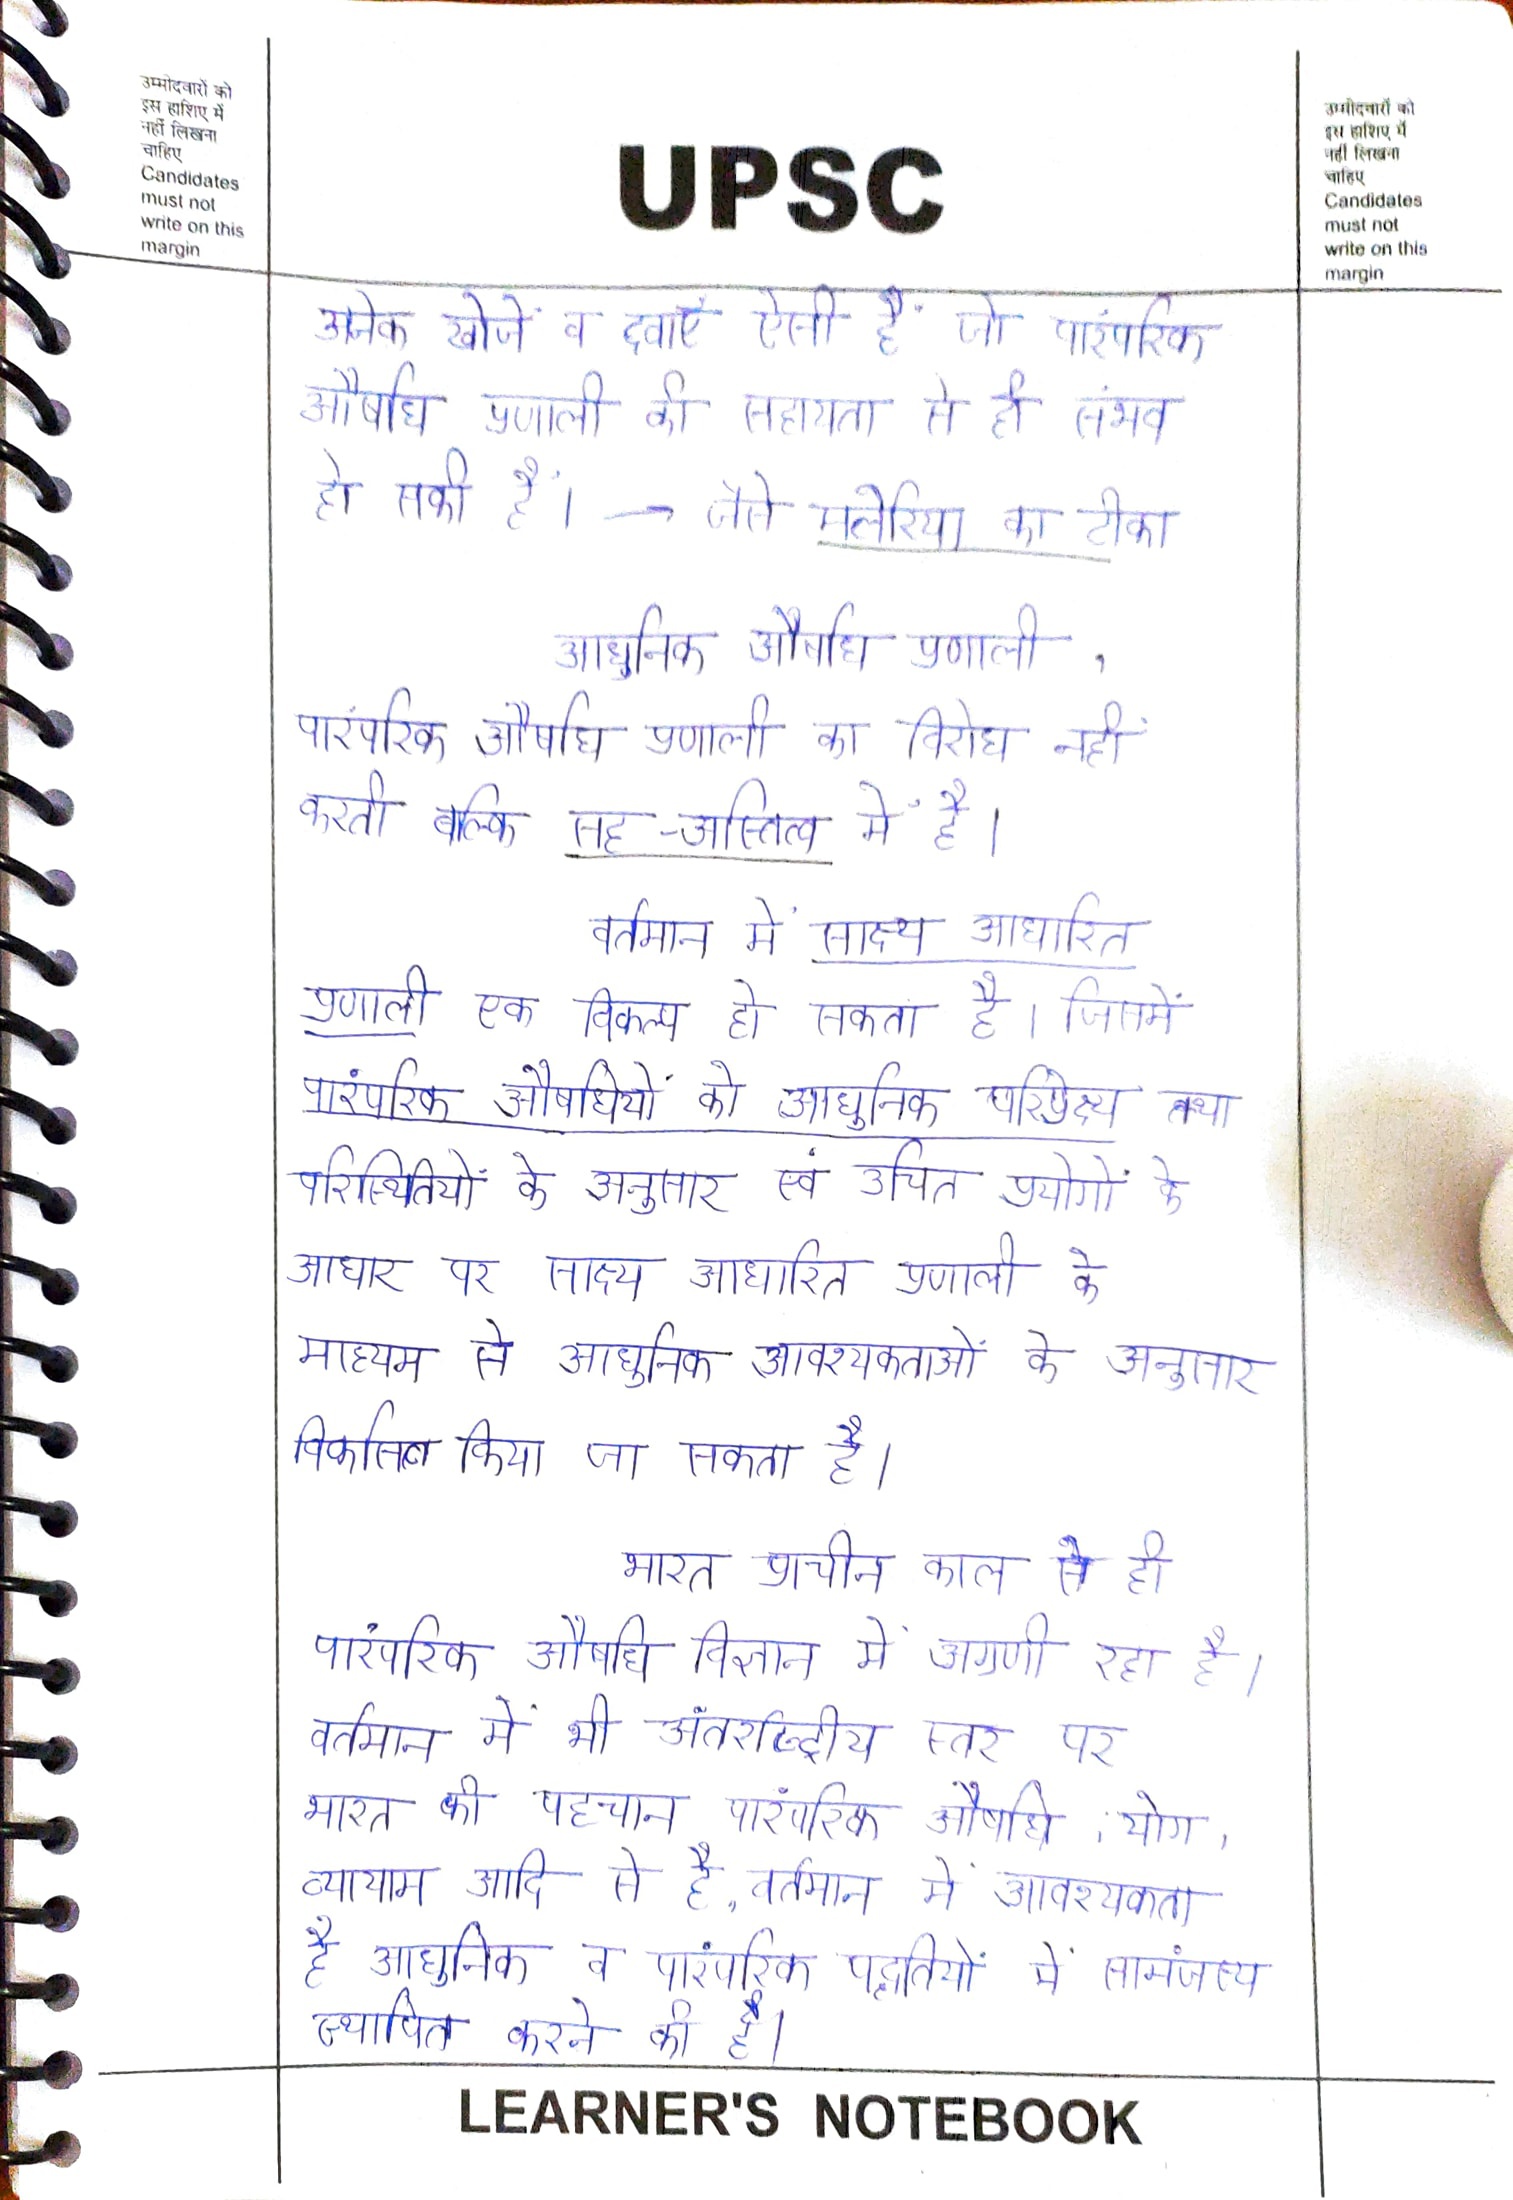 उम्मीदवारों को
इस हाशिए में
नहीं लिखना
चाहिए
Candidates
must not
write on this
margin
UPSC
उम्मीदवारों को
इस हाशिए में
नहीं लिखना
चाहिए
Candidates
must not
write on this
margin
अनेक खोजें व दवाएँ ऐसी हैं जो पारंपरिक
औषधि प्रणाली की सहायता से ही संभव
हो सकी हैं। → जैसे मलेरिया का टीका
आधुनिक औषधि प्रणाली,
पारंपरिक औषधि प्रणाली का विरोध नहीं
करती बल्कि सह-अस्तित्व में है।
वर्तमान में साक्ष्य आधारित
प्रणाली एक विकल्प हो सकता है। जिसमें
पारंपरिक औषधियों को आधुनिक परिप्रेक्ष्य तथा
परिस्थितियों के अनुसार एवं उचित प्रयोगों के
आधार पर साक्ष्य आधारित प्रणाली के
माध्यम से आधुनिक आवश्यकताओं के अनुसार
विकसित किया जा सकता है।
भारत प्राचीन काल से ही
पारंपरिक औषधि विज्ञान में अग्रणी रहा है।
वर्तमान में भी अंतर्राष्ट्रीय स्तर पर
भारत की पहचान पारंपरिक औषधि, योग,
व्यायाम आदि से है, वर्तमान में आवश्यकता
है आधुनिक व पारंपरिक पद्धतियों में सामंजस्य
स्थापित करने की है।
LEARNER'S NOTEBOOK